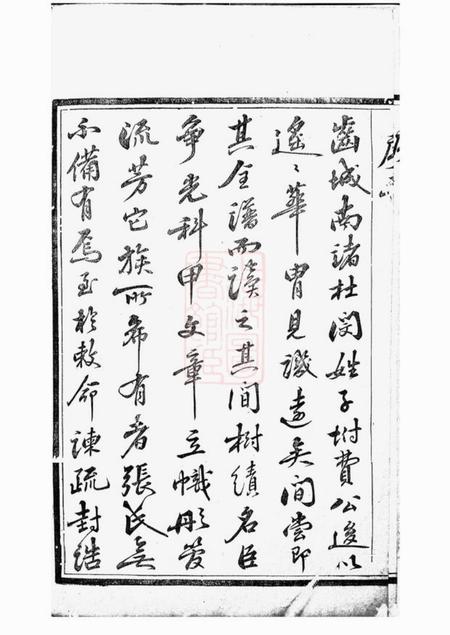 齒城南諸杜閔姓子坿費公後以
遙〻華胄見譏遠矣間嘗即
其全譜而讀之其間樹績名臣
爭光科甲文章立幟彤管
流芳它族所希有者張氏無
不備有焉至於敕命諫疏封誥